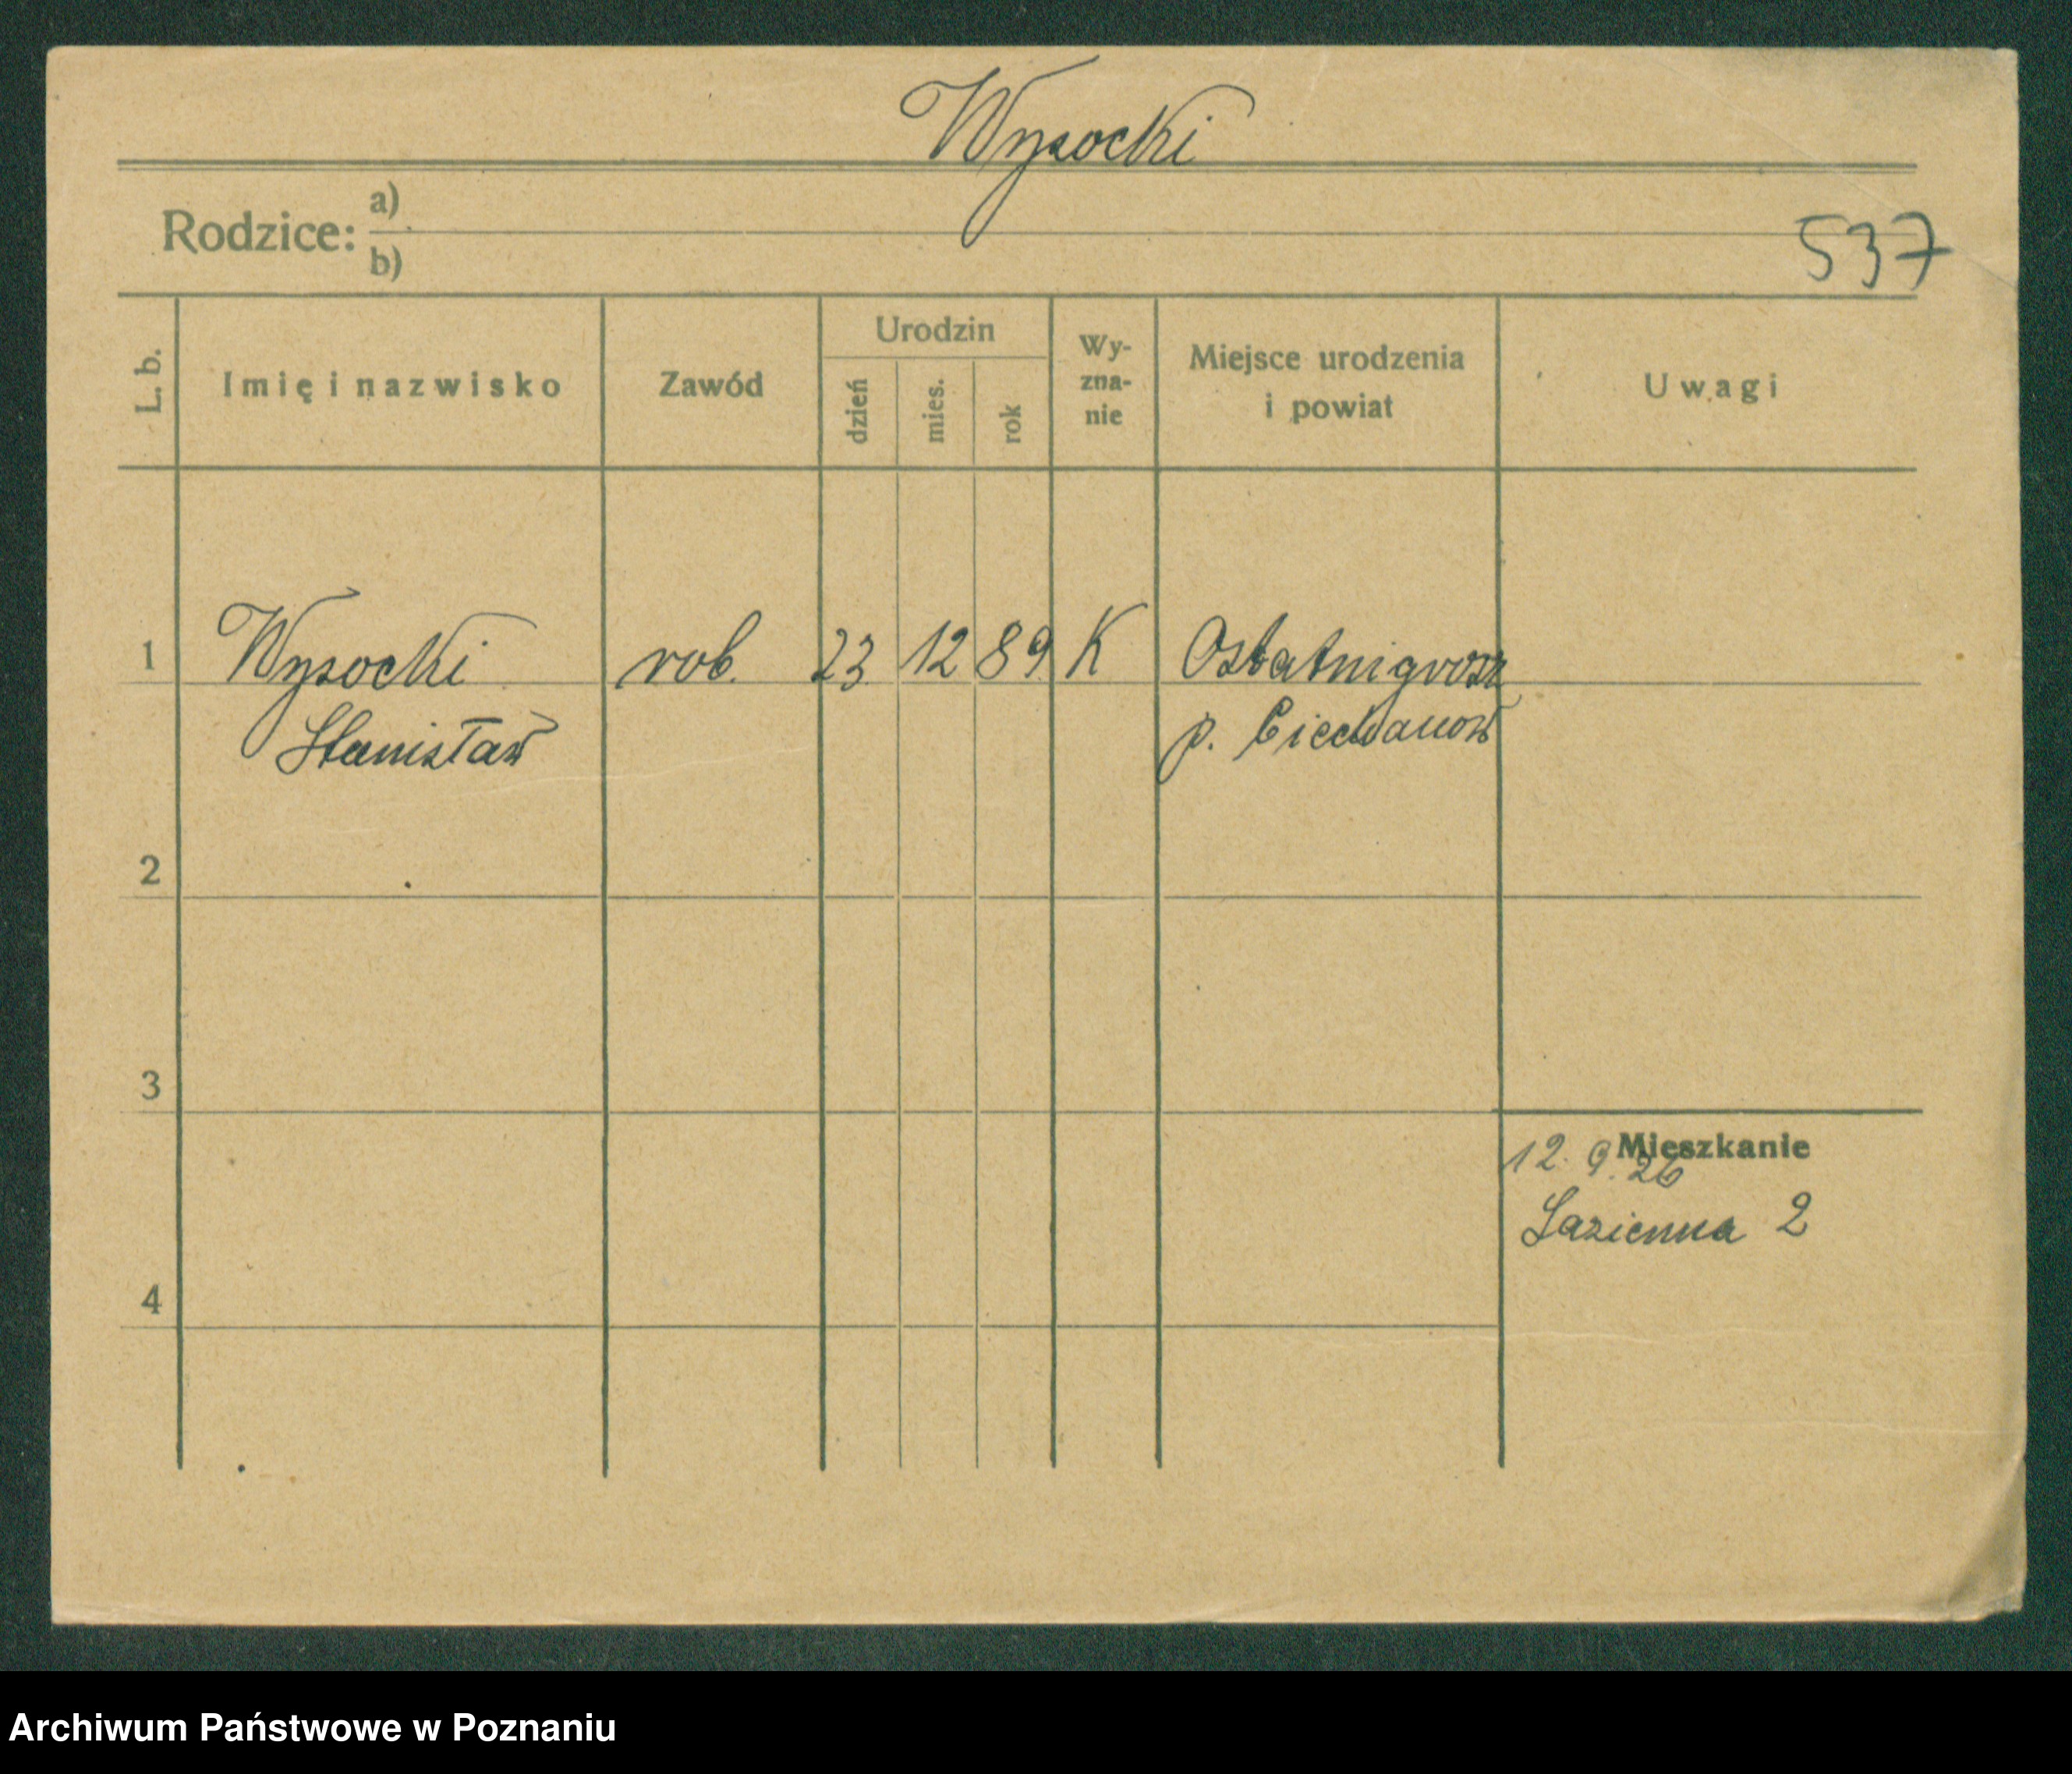 Wysocki
Rodzice: a)
b)
537
L. b. Imię i nazwisko Zawód Urodzin dzień mies. rok Wy-zna-nie Miejsce urodzenia i powiat Uwagi
1 Wysocki rob. 23. 12 89. K Ostatnigrosz
Stanisław p. Ciechanow
2
3
Mieszkanie
12. 9. 26
Lazienna 2
4
Archiwum Państwowe w Poznaniu